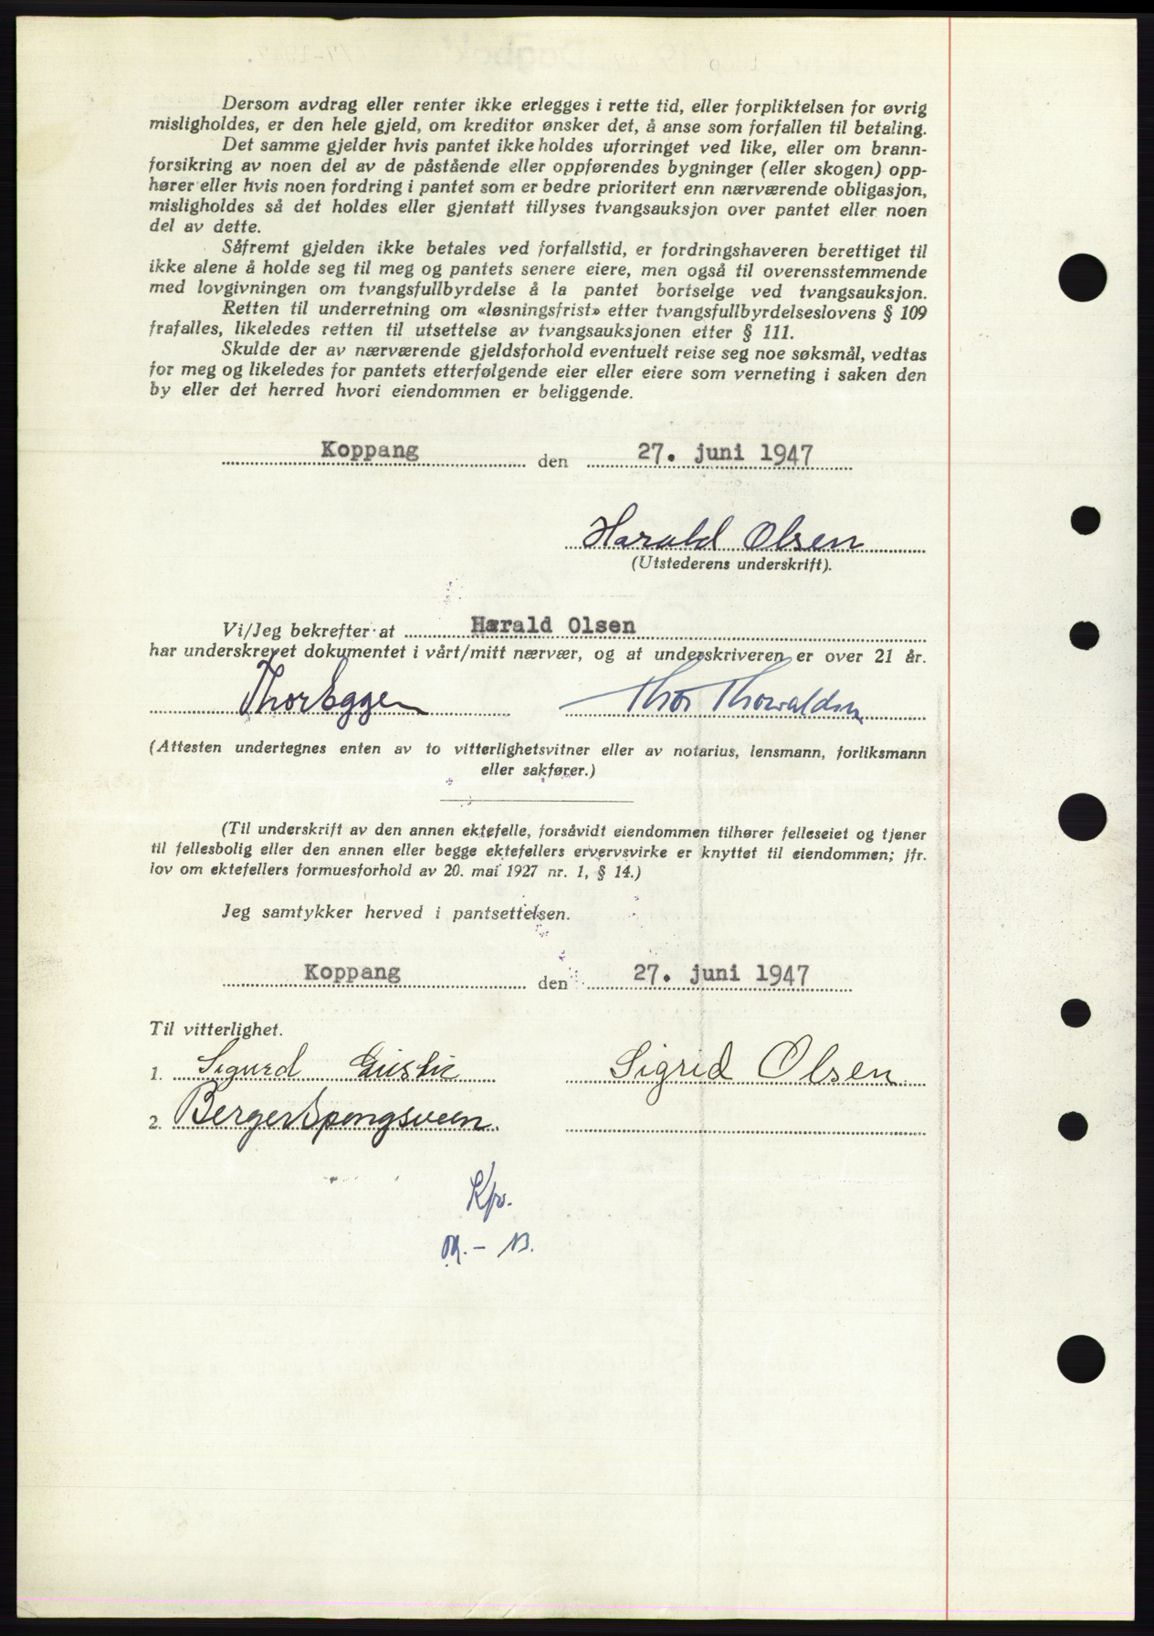 Dersom avdrag eller renter ikke erlegges i rette tid, eller forpliktelsen for øvrig
misligholdes, er den hele gjeld, om kreditor ønsker det, å anse som forfallen til betaling.
Det samme gjelder hvis pantet ikke holdes uforringet ved like, eller om brann-
forsikring av noen del av de påstående eller oppførendes bygninger (eller skogen) opp-
hører eller hvis noen fordring i pantet som er bedre prioritert enn nærværende obligasjon,
misligholdes så det holdes eller gjentatt tillyses tvangsauksjon over pantet eller noen
del av dette.
Såfremt gjelden ikke betales ved forfallstid, er fordringshaveren berettiget til
ikke alene å holde seg til meg og pantets senere eiere, men også til overensstemmende
med lovgivningen om tvangsfullbyrdelse å la pantet bortselge ved tvangsauksjon.
Retten til underretning om «løsningsfrist» etter tvangsfullbyrdelseslovens § 109
frafalles, likeledes retten til utsettelse av tvangsauksjonen etter § 111.
Skulde der av nærværende gjeldsforhold eventuelt reise seg noe søksmål, vedtas
for meg og likeledes for pantets etterfølgende eier eller eiere som verneting i saken den
by eller det herred hvori eiendommen er beliggende.
Koppang den 27. juni 1947
Harald Olsen
(Utstederens underskrift).
Vi/Jeg bekrefter at Harald Olsen
har underskrevet dokumentet i vårt/mitt nærvær, og at underskriveren er over 21 år.
Thor Eggen Thor Thorvaldsen
(Attesten undertegnes enten av to vitterlighetsvitner eller av notarius, lensmann, forliksmann
eller sakfører.)
(Til underskrift av den annen ektefelle, forsåvidt eiendommen tilhører felleseiet og tjener
til fellesbolig eller den annen eller begge ektefellers ervervsvirke er knyttet til eiendommen; jfr.
lov om ektefellers formuesforhold av 20. mai 1927 nr. 1, § 14.)
Jeg samtykker herved i pantsettelsen.
Koppang den 27. juni 1947
Til vitterlighet.
1. Sigurd Sigrid Olsen
2. Berger Spongsveen.
Kpr.